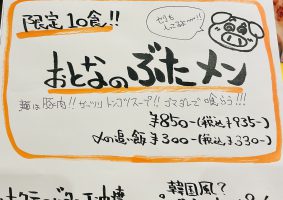 限定10食!!
おとなのぶたメン
麺は豚肉!! ガッツリトンコツスープ!! ゴマダレで喰らう!!!
¥850-(税込¥935-)
〆の追い飯¥300-(税込¥330-)
韓国風?